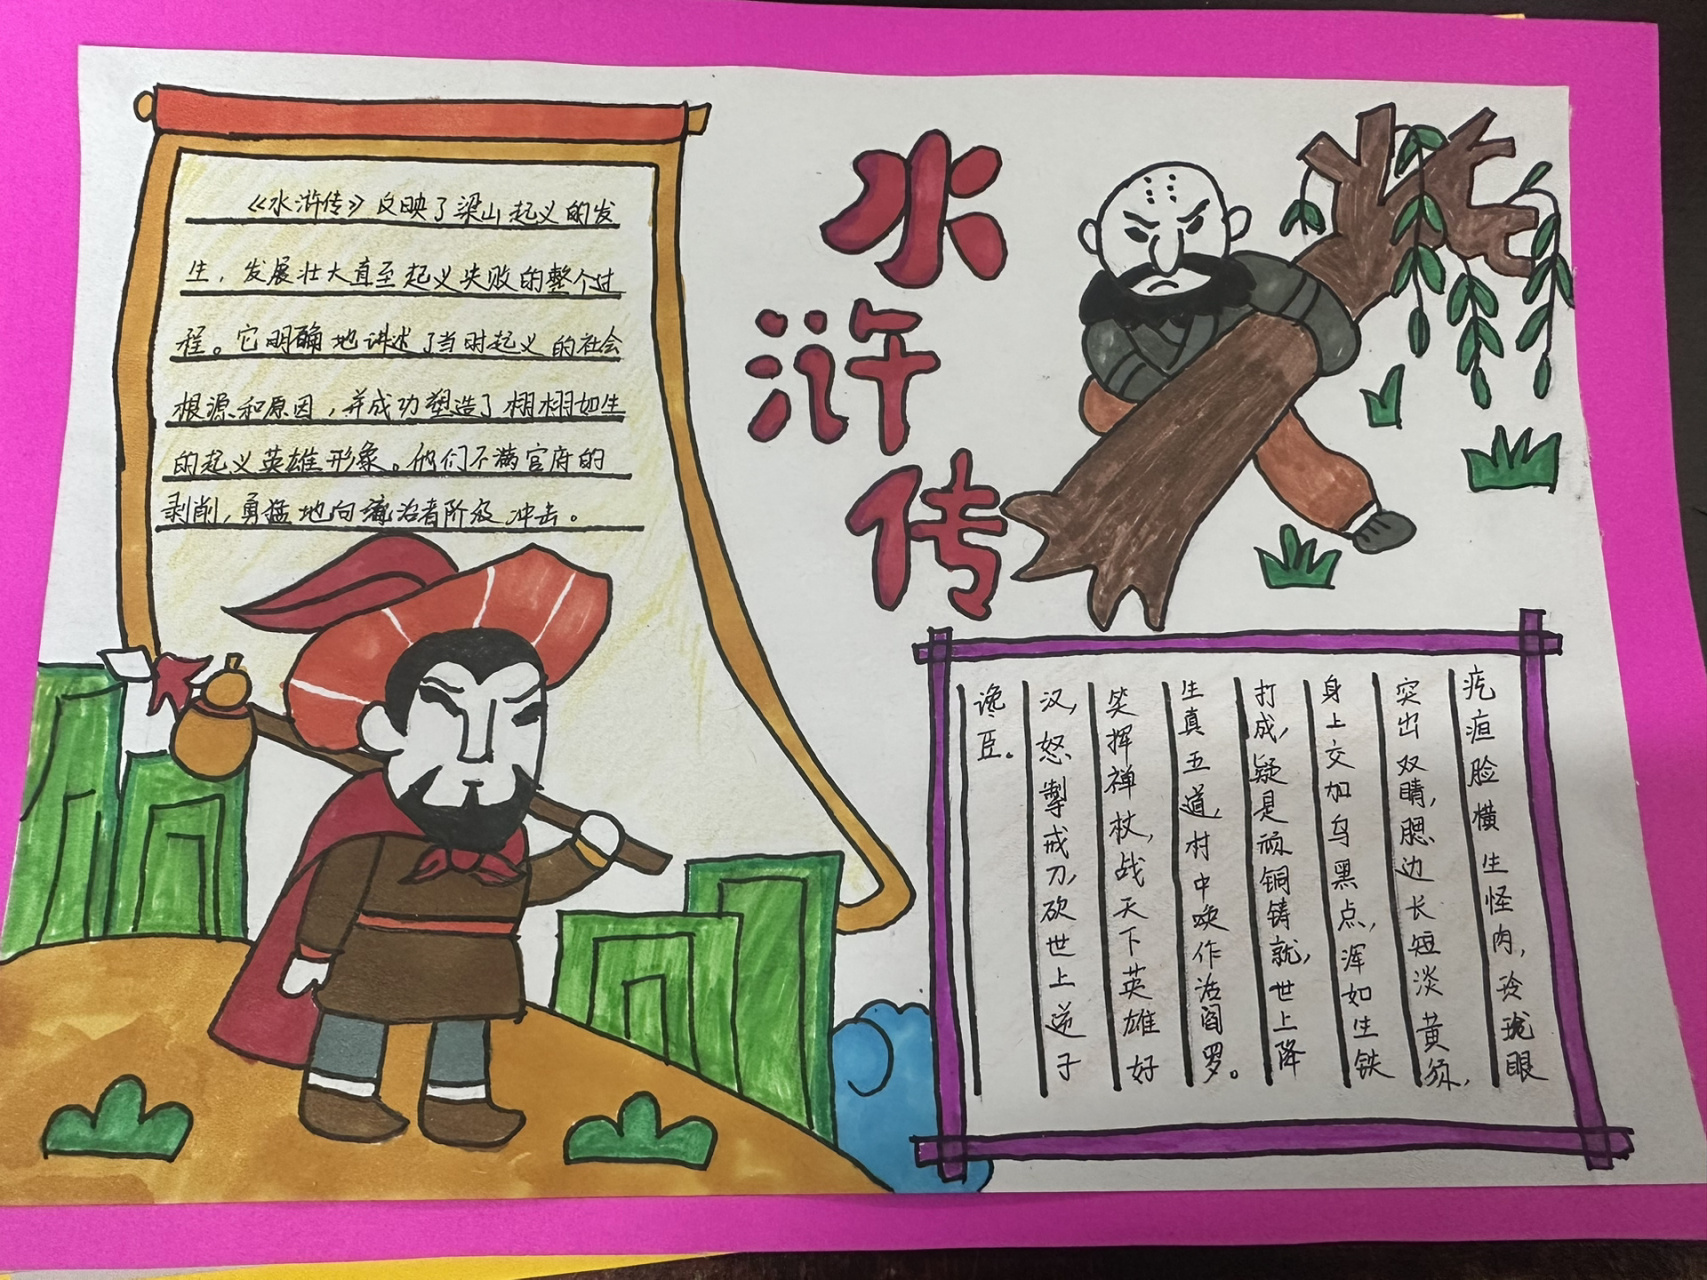 《水浒传》反映了梁山起义的发
生，发展壮大直至起义失败的整个过
程。它明确地讲述了当时起义的社会
根源和原因，并成功塑造了栩栩如生
的起义英雄形象。他们不满官府的
剥削，勇猛地向统治者阶级冲击。
水
浒
传
疙疸脸横生怪肉，玲珑眼
突出双睛，腮边长短淡黄须，
身上交加乌黑点，浑如生铁
打成，疑是顽铜铸就，世上降
生真五道，村中唤作活阎罗。
笑挥禅杖，战天下英雄好
汉，怒掣戒刀，砍世上逆子
谗臣。